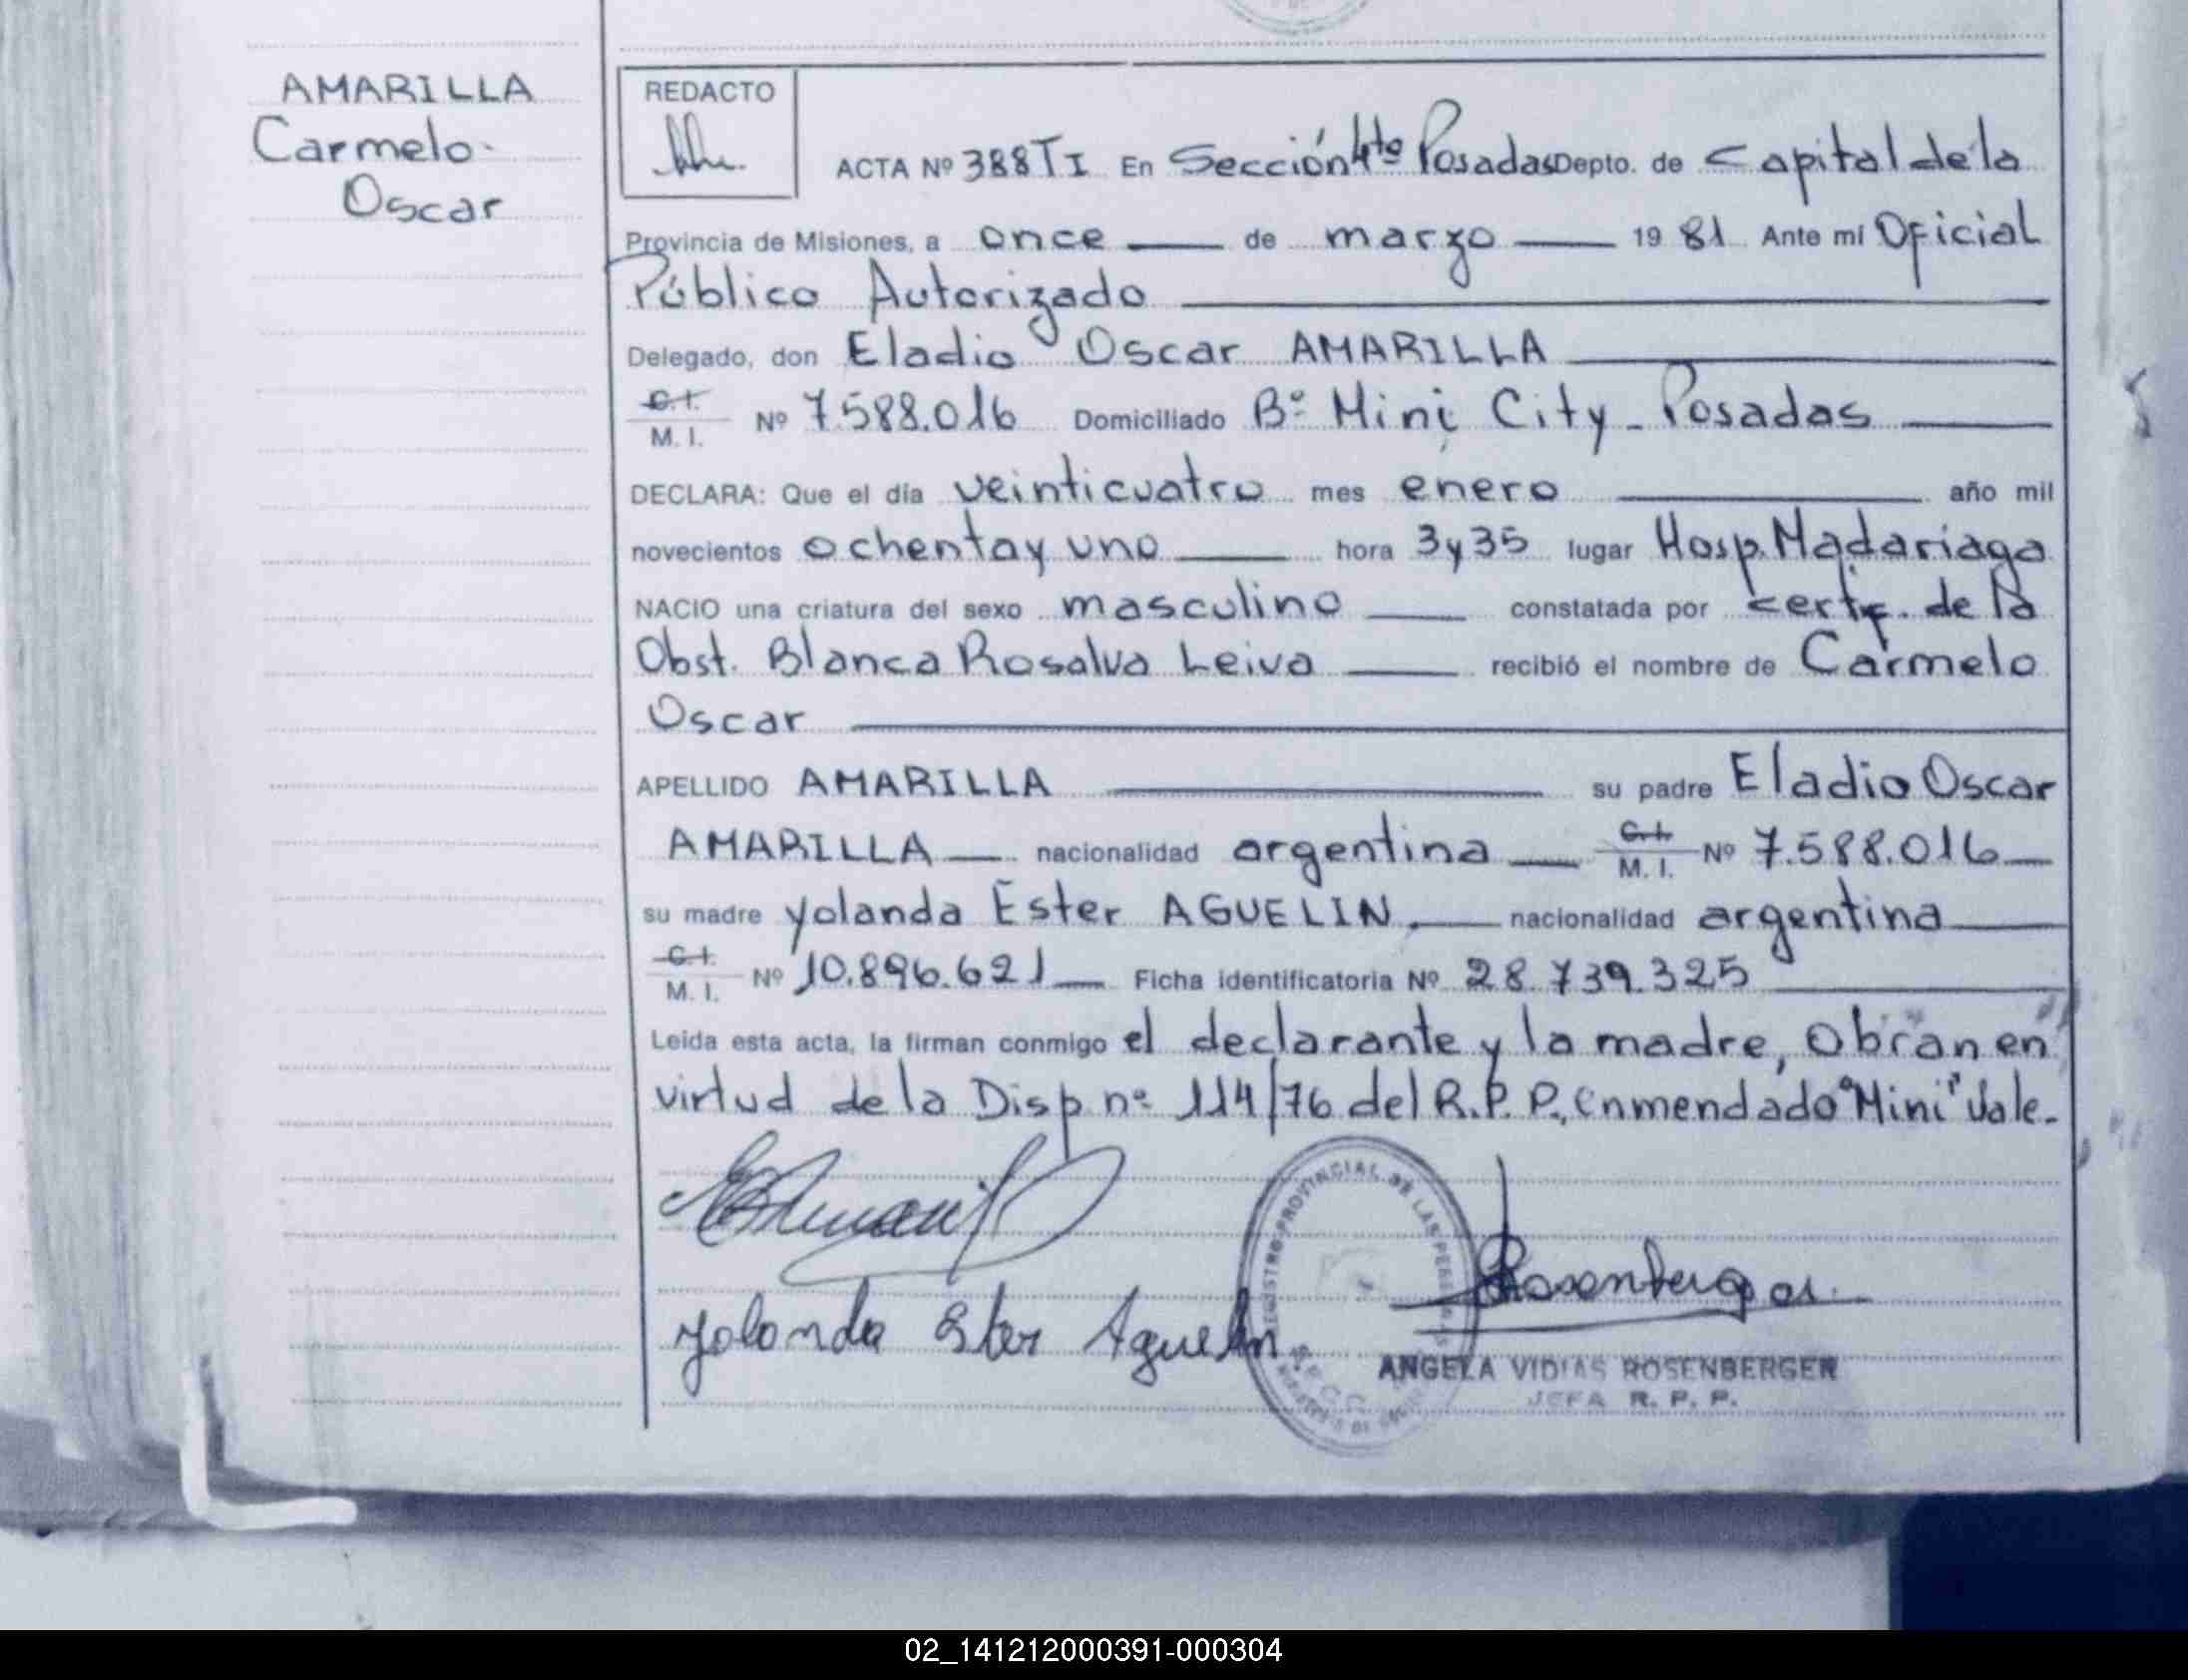 AMARILLA
Carmelo
Oscar
REDACTO
ACTA Nº 388 T I En Sección 4ta Posadas Depto. de Capital de la
Provincia de Misiones, a once de marzo 1981 Ante mí Oficial
Público Autorizado
Delegado, don Eladio Oscar AMARILLA
C.I.
M. I. Nº 7.588.016 Domiciliado Bº Mini City - Posadas
DECLARA: Que el día veinticuatro mes enero año mil
novecientos ochenta y uno hora 3 y 35 lugar Hosp. Madariaga
NACIO una criatura del sexo masculino constatada por certif. de la
Obst. Blanca Rosalva Leiva recibió el nombre de Carmelo
Oscar
APELLIDO AMARILLA su padre Eladio Oscar
AMARILLA nacionalidad argentina C.I. M. I. Nº 7.588.016
su madre Yolanda Ester AGUELIN, nacionalidad argentina
C.I.
M. I. Nº 10.896.621 Ficha identificatoria Nº 28.739.325
Leída esta acta, la firman conmigo el declarante y la madre, Obran en
virtud de la Disp nº 114/76 del R.P.P., Enmendado "Mini" Vale.
Yolanda Ester Aguelin
REGISTRO PROVINCIAL DE LAS PERSONAS
Rosenberger
ANGELA VIDIAS ROSENBERGER
JEFA R. P. P.
02_141212000391-000304